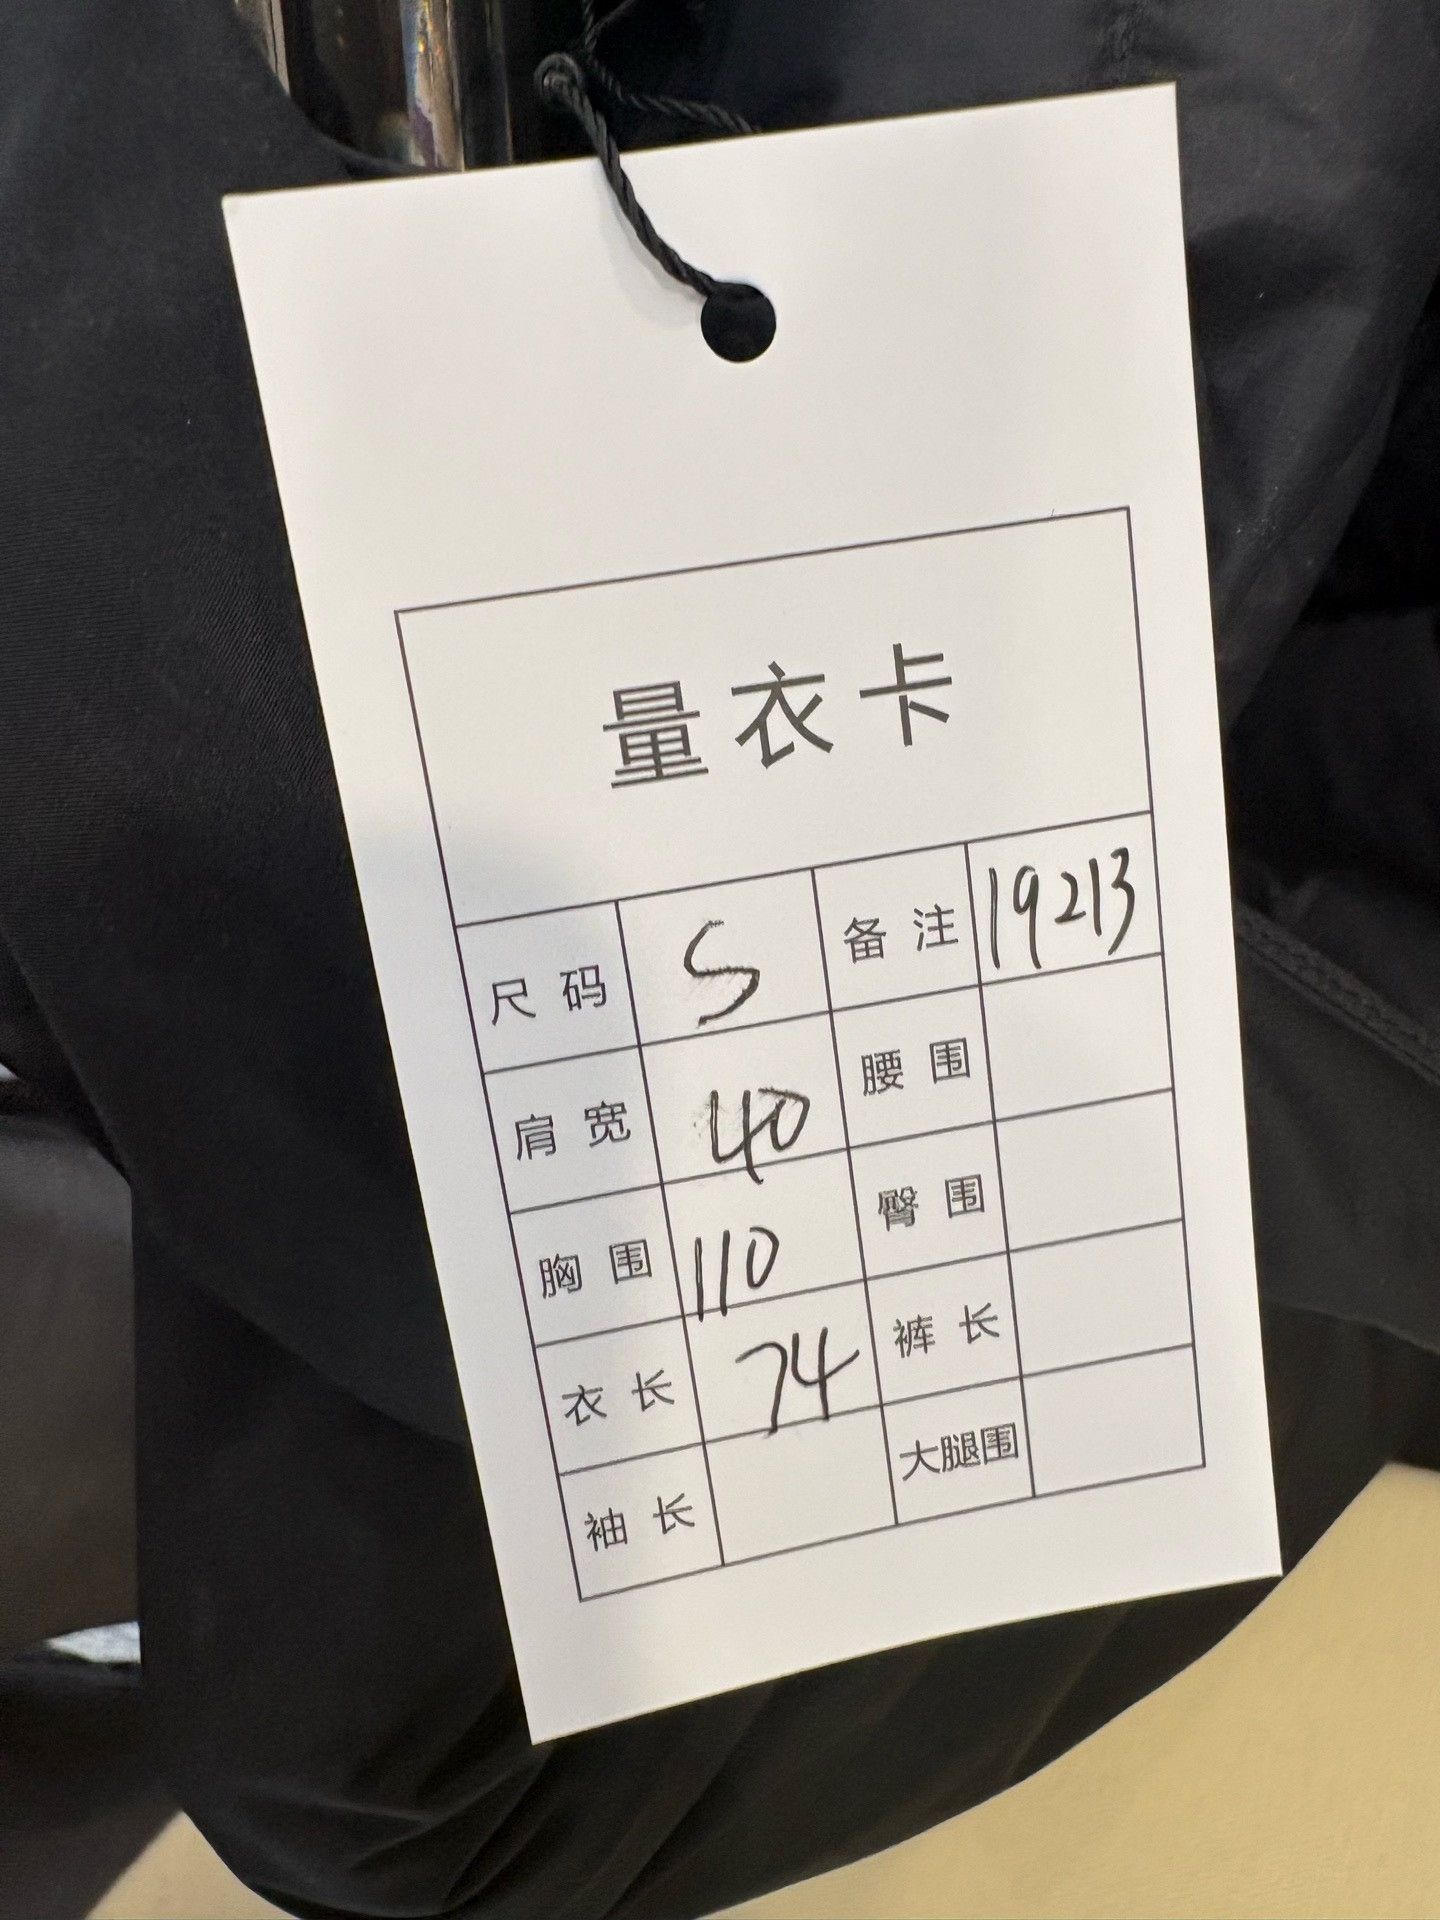 量衣卡
尺码 S 备注 19213
肩宽 40 腰围
胸围 110 臀围
衣长 74 裤长
袖长 大腿围